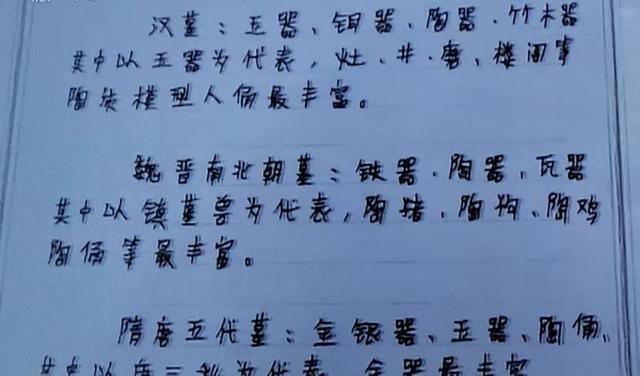 汉墓：玉器、铜器、陶器、竹木器
其中以玉器为代表，灶、井、磨、楼阁等
陶类模型人俑最丰富。
魏晋南北朝墓：铁器、陶器、瓦器
其中以镇墓兽为代表，陶猪、陶狗、陶鸡
陶俑等最丰富。
隋唐五代墓：金银器、玉器、陶俑、
其中以唐三彩为代表，金器最丰富